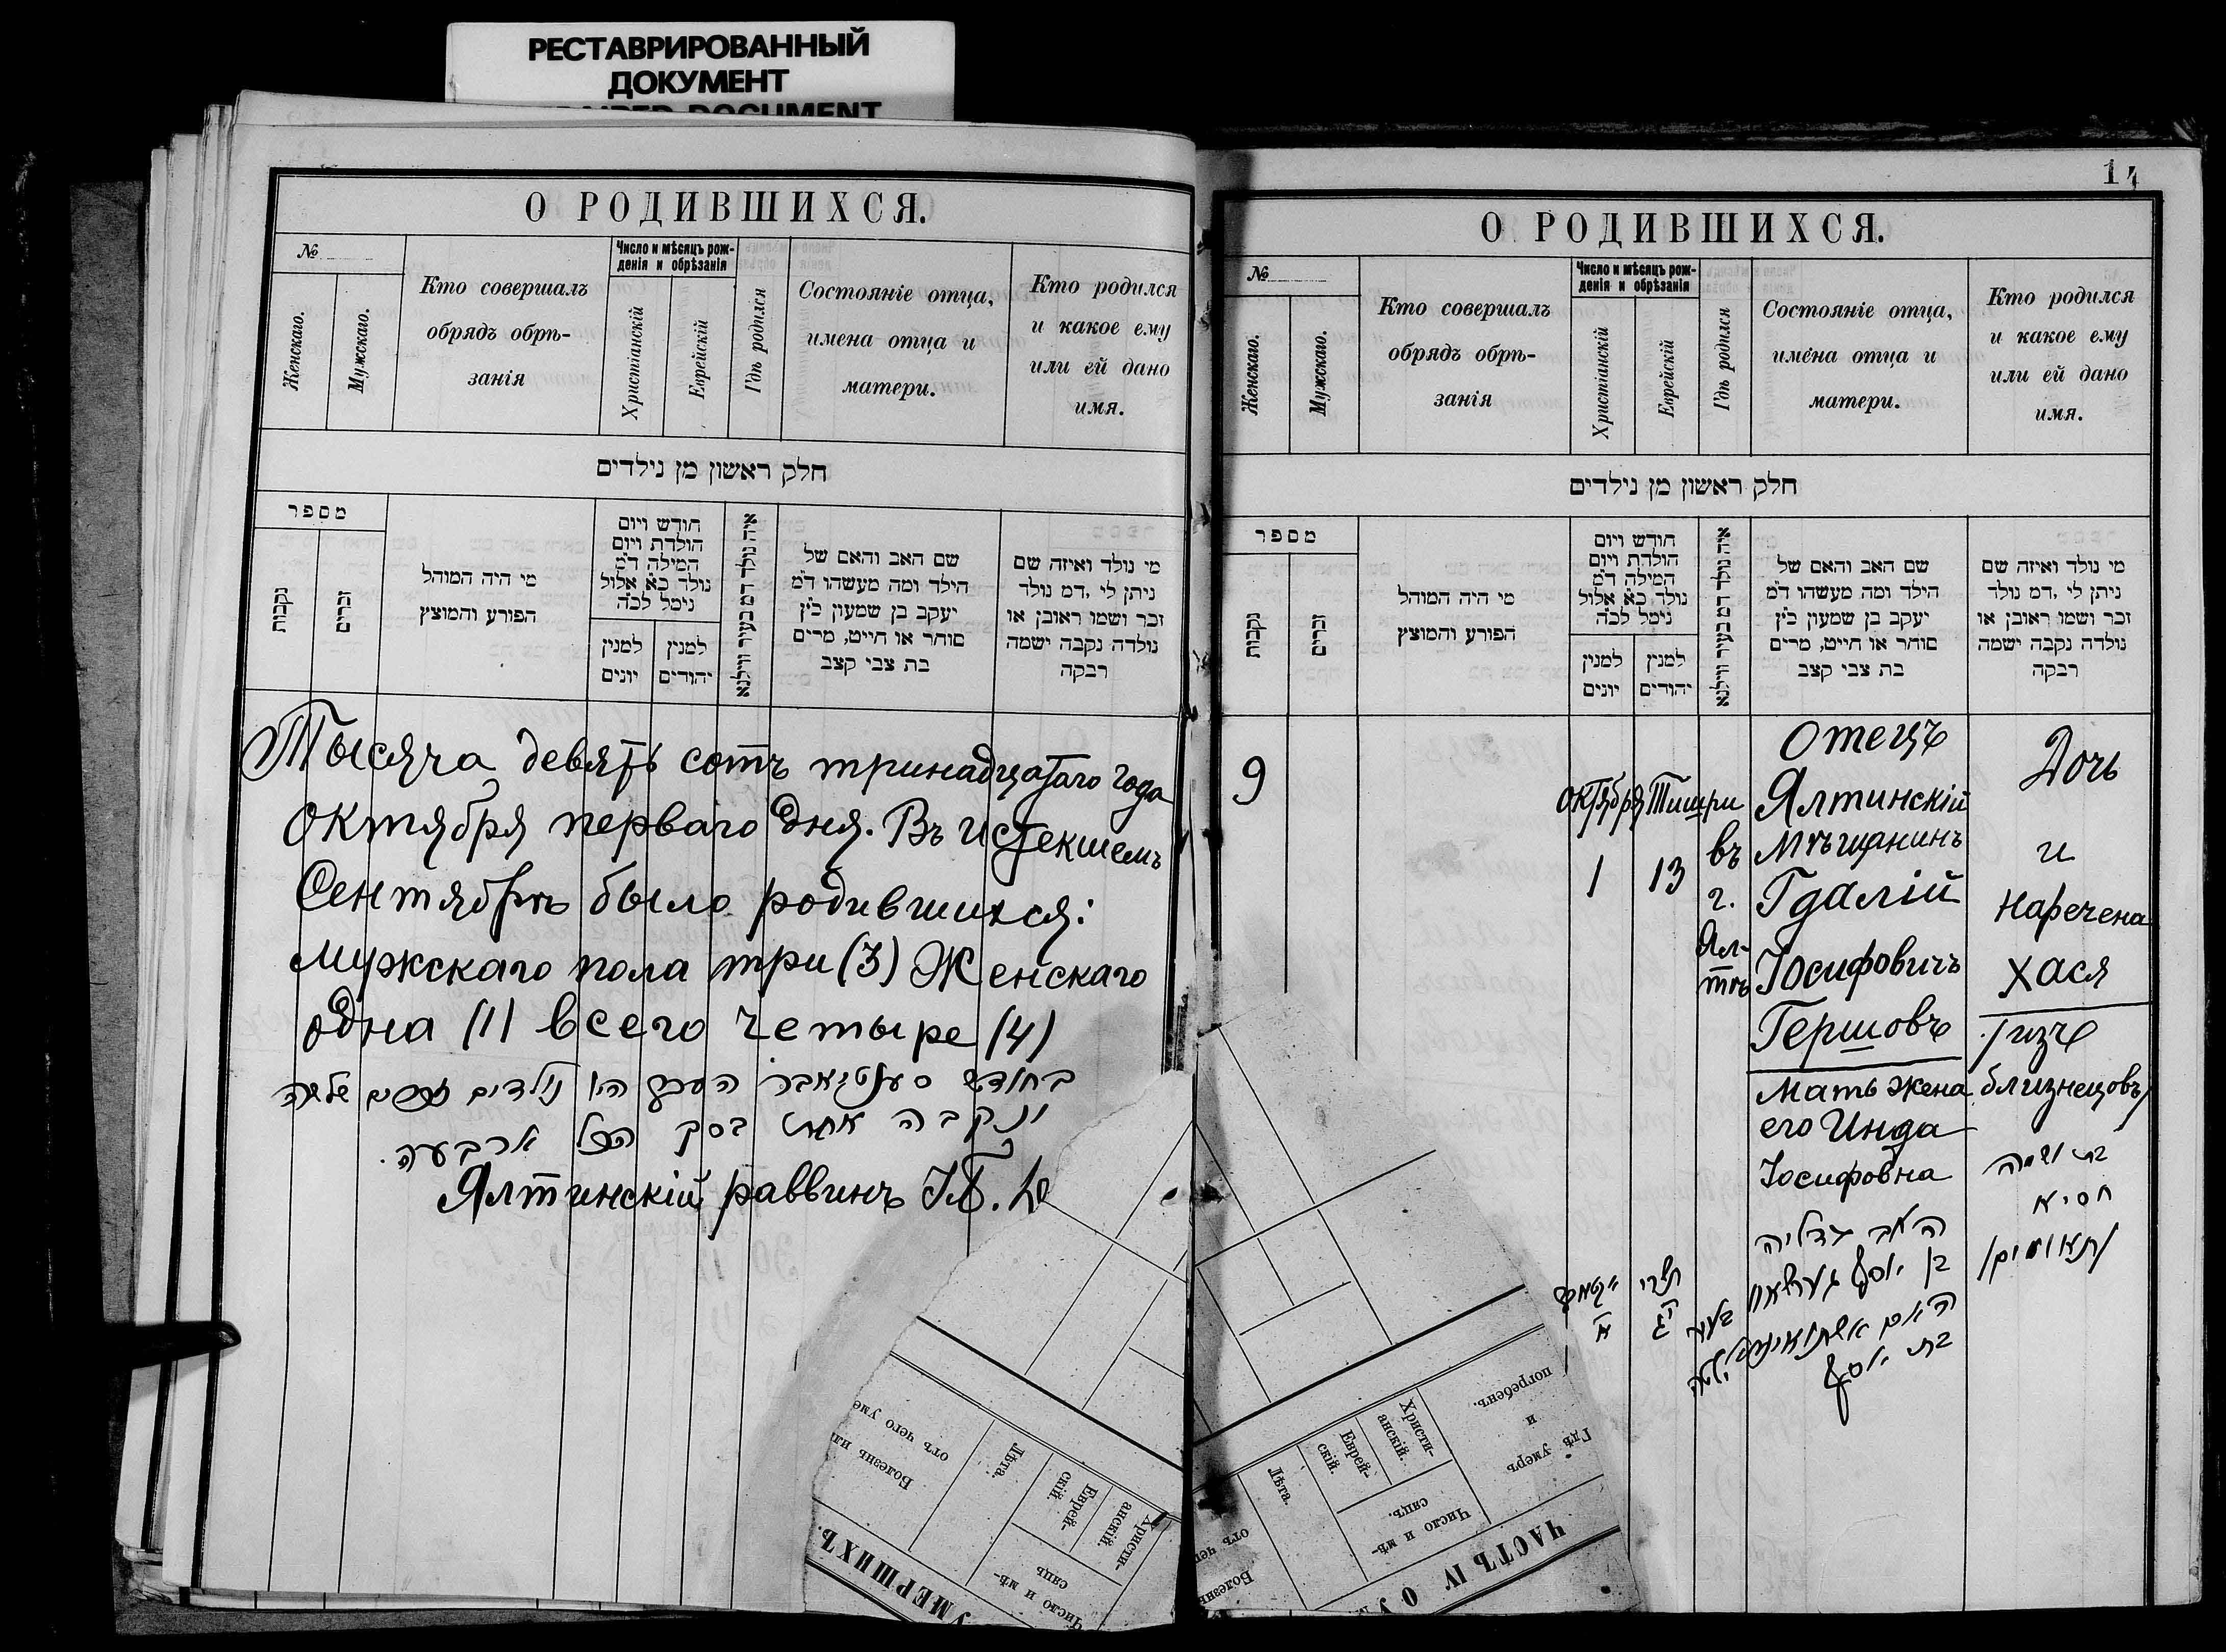 РЕСТАВРИРОВАННЫЙ
ДОКУМЕНТ
DOCUMENT
О РОДИВШИХСЯ.
№
Женскаго.
Мужскаго.
Кто совершалъ
обрядъ обрѣ-
занія
Число и мѣсяцъ рож-
денія и обрѣзанія
Христіанскій
Еврейскій
Гдѣ родился
Состояніе отца,
имена отца и
матери.
Кто родился
и какое ему
или ей дано
имя.
חלק ראשון מן נילדים
מספר
נקבות
זכרים
מי היה המוהל
הפורע והמוצץ
חודש ויום
הולדת ויום
המילה ד״מ
נולד כ״א אלול
נימל לכ״ה
למנין
יונים
למנין
יהודים
איה נולד דמ בעיר ווילנא
שם האב והאם של
הילד ומה מעשהו ד״מ
יעקב בן שמעון כ״ץ
סוחר או חייט, מרים
בת צבי קצב
מי נולד ואיזה שם
ניתן לי, דמ נולד
זכר ושמו ראובן או
נולדה נקבה ישמה
רבקה
Тысяча девять сотъ тринадцатаго года
Октября перваго дня. Въ истекшемъ
Сентябрѣ было родившихся:
мужскаго пола три (3) Женскаго
одна (1) всего четыре (4)
בחודש סענטיאבר היו נולדים זכרים שלשה
ונקבה אחת בסך הכל ארבעה.
Ялтинскій раввинъ
Болезнь или
отъ чего уме
Лѣта.
Еврей-
скій.
Христі-
анскій.
Число и мѣ-
сяцъ
УМЕРШИХЪ.
14
О РОДИВШИХСЯ.
№
Женскаго.
Мужскаго.
Кто совершалъ
обрядъ обрѣ-
занія
Число и мѣсяцъ рож-
денія и обрѣзанія
Христіанскій
Еврейскій
Гдѣ родился
Состояніе отца,
имена отца и
матери.
Кто родился
и какое ему
или ей дано
имя.
חלק ראשון מן נילדים
מספר
נקבות
זכרים
מי היה המוהל
הפורע והמוצץ
חודש ויום
הולדת ויום
המילה ד״מ
נולד כ״א אלול
נימל לכ״ה
למנין
יונים
למנין
יהודים
איה נולד דמ בעיר ווילנא
שם האב והאם של
הילד ומה מעשהו ד״מ
יעקב בן שמעון כ״ץ
סוחר או חייט, מרים
בת צבי קצב
מי נולד ואיזה שם
ניתן לי, דמ נולד
זכר ושמו ראובן או
נולדה נקבה ישמה
רבקה
9
Октября
1
Тишри
13
въ
г.
Ял-
тѣ
Отецъ
Ялтинскій
мѣщанинъ
Гдалій
Іосифовичъ
Гершовъ
Мать жена
его Инда
Іосифовна
Дочь
и
наречена
Хася
/изъ
близнецовъ/
תשרי
י״ג
א
האב גדליה
בן יוסף גערשאוו
האם אשתו אינדא
בת יוסף
בת ושמה
חסיא
/תאומים/
Гдѣ умеръ
и
погребенъ.
Христі-
анскій.
Еврей-
скій.
Число и мѣ-
сяцъ.
Лѣта.
Болезнь
отъ чег
ЧАСТЬ IV О У